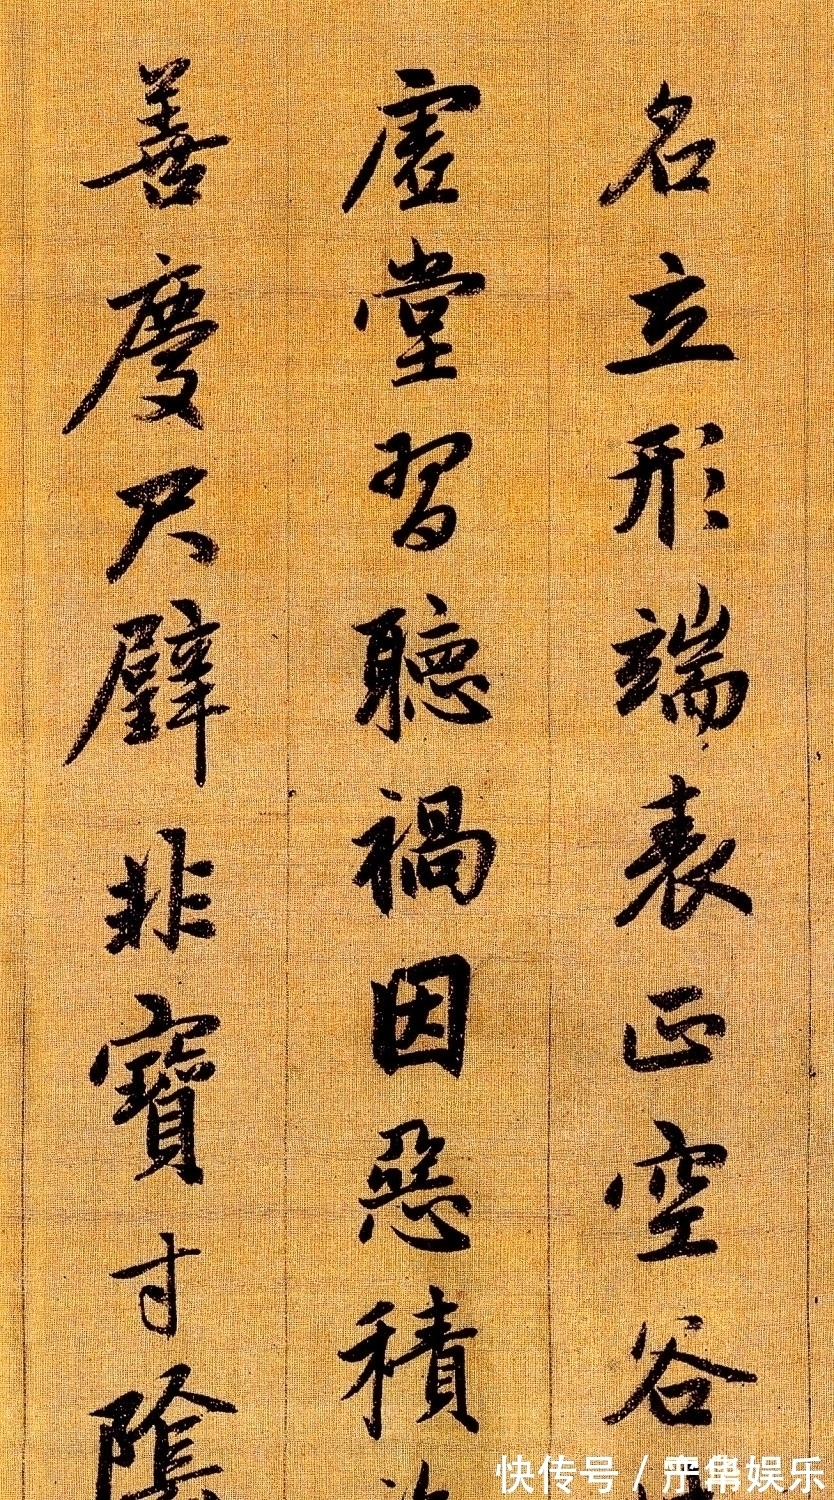 名立形端表正空谷
虛堂習聽禍因惡積
善慶尺璧非寶寸陰
快传号 / 娱乐